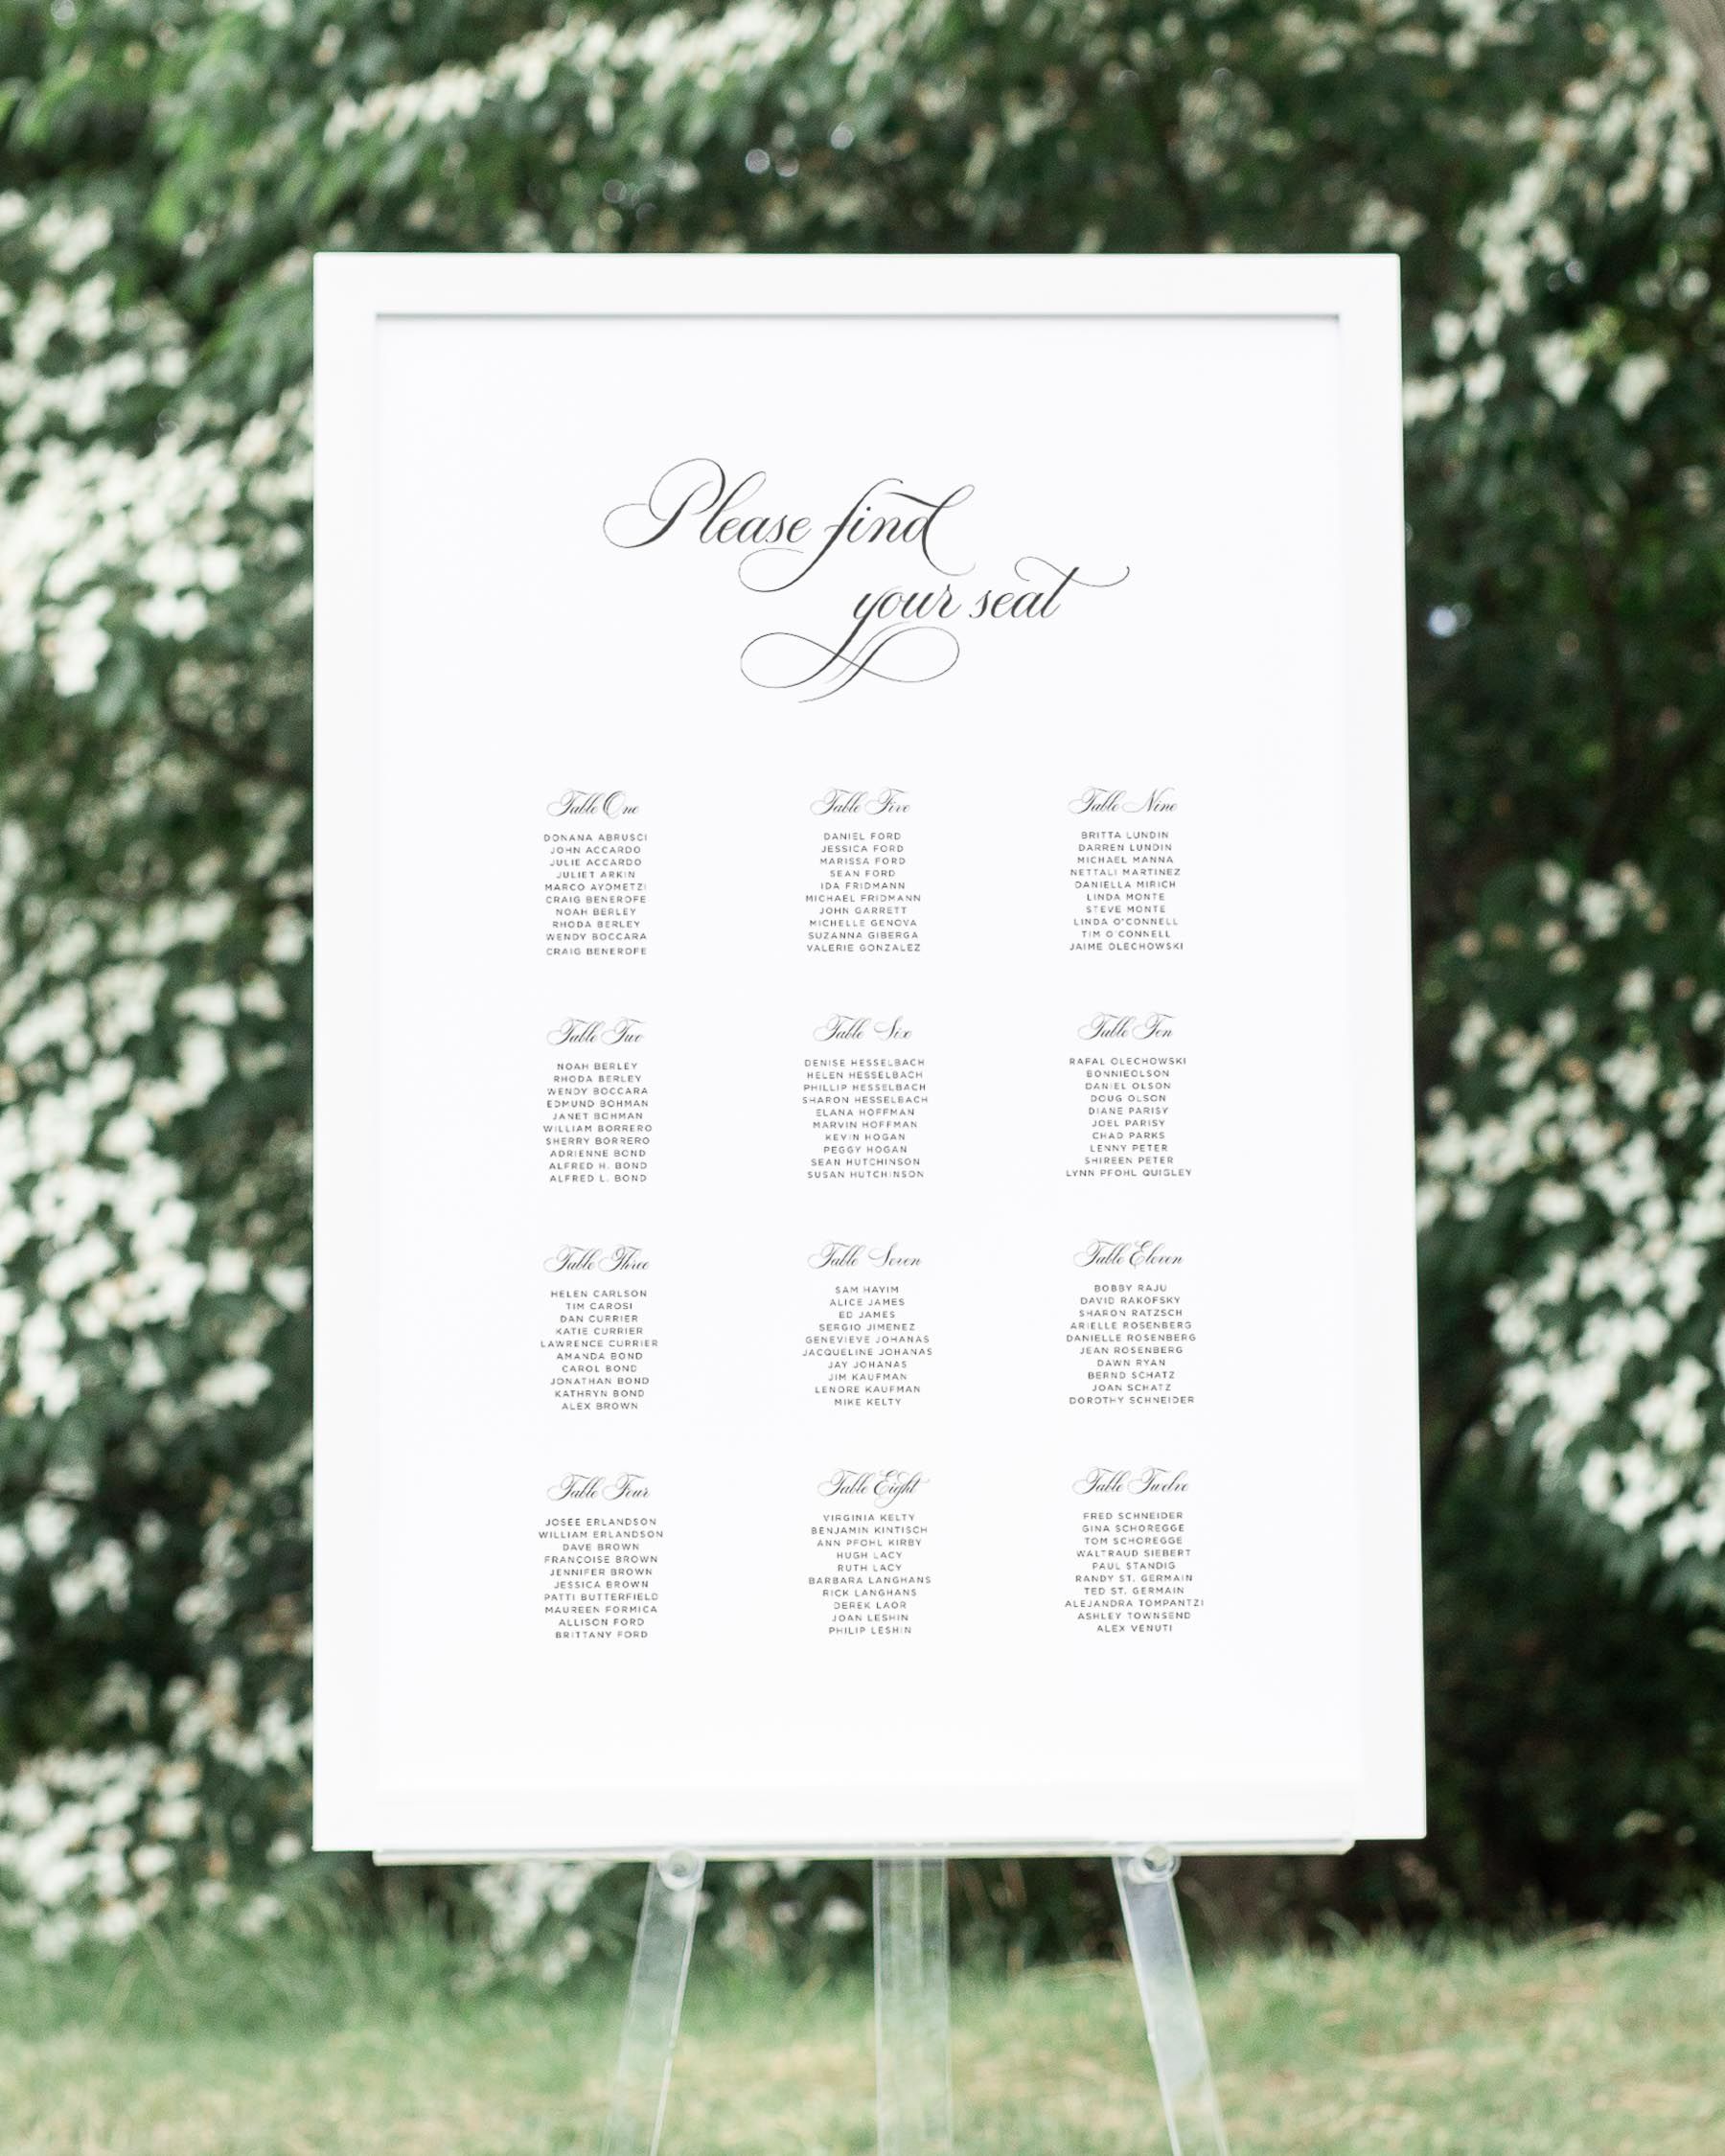 Please find
your seat
Table One
DONANA ABRUSCI
JOHN ACCARDO
JULIE ACCARDO
JULIET ARKIN
MARCO AYOMETZI
CRAIG BENEROFE
NOAH BERLEY
RHODA BERLEY
WENDY BOCCARA
CRAIG BENEROFE
Table Two
NOAH BERLEY
RHODA BERLEY
WENDY BOCCARA
EDMUND BOHMAN
JANET BOHMAN
WILLIAM BORRERO
SHERRY BORRERO
ADRIENNE BOND
ALFRED H. BOND
ALFRED L. BOND
Table Three
HELEN CARLSON
TIM CAROSI
DAN CURRIER
KATIE CURRIER
LAWRENCE CURRIER
AMANDA BOND
CAROL BOND
JONATHAN BOND
KATHRYN BOND
ALEX BROWN
Table Four
JOSEE ERLANDSON
WILLIAM ERLANDSON
DAVE BROWN
FRANÇOISE BROWN
JENNIFER BROWN
JESSICA BROWN
PATTI BUTTERFIELD
MAUREEN FORMICA
ALLISON FORD
BRITTANY FORD
Table Five
DANIEL FORD
JESSICA FORD
MARISSA FORD
SEAN FORD
IDA FRIDMANN
MICHAEL FRIDMANN
JOHN GARRETT
MICHELLE GENOVA
SUZANNA GIBERGA
VALERIE GONZALEZ
Table Six
DENISE HESSELBACH
HELEN HESSELBACH
PHILLIP HESSELBACH
SHARON HESSELBACH
ELANA HOFFMAN
MARVIN HOFFMAN
KEVIN HOGAN
PEGGY HOGAN
SEAN HUTCHINSON
SUSAN HUTCHINSON
Table Seven
SAM HAYIM
ALICE JAMES
ED JAMES
SERGIO JIMENEZ
GENEVIEVE JOHANAS
JACQUELINE JOHANAS
JAY JOHANAS
JIM KAUFMAN
LENORE KAUFMAN
MIKE KELTY
Table Eight
VIRGINIA KELTY
BENJAMIN KINTISCH
ANN PFOHL KIRBY
HUGH LACY
RUTH LACY
BARBARA LANGHANS
RICK LANGHANS
DEREK LAOR
JOAN LESHIN
PHILIP LESHIN
Table Nine
BRITTA LUNDIN
DARREN LUNDIN
MICHAEL MANNA
NETTALI MARTINEZ
DANIELLA MIRICH
LINDA MONTE
STEVE MONTE
LINDA O'CONNELL
TIM O'CONNELL
JAIME OLECHOWSKI
Table Ten
RAFAL OLECHOWSKI
BONNIEOLSON
DANIEL OLSON
DOUG OLSON
DIANE PARISY
JOEL PARISY
CHAD PARKS
LENNY PETER
SHIREEN PETER
LYNN PFOHL QUIGLEY
Table Eleven
BOBBY RAJU
DAVID RAKOFSKY
SHARON RATZSCH
ARIELLE ROSENBERG
DANIELLE ROSENBERG
JEAN ROSENBERG
DAWN RYAN
BERND SCHATZ
JOAN SCHATZ
DOROTHY SCHNEIDER
Table Twelve
FRED SCHNEIDER
GINA SCHOREGGE
TOM SCHOREGGE
WALTRAUD SIEBERT
PAUL STANDIG
RANDY ST. GERMAIN
TED ST. GERMAIN
ALEJANDRA TOMPANTZI
ASHLEY TOWNSEND
ALEX VENUTI